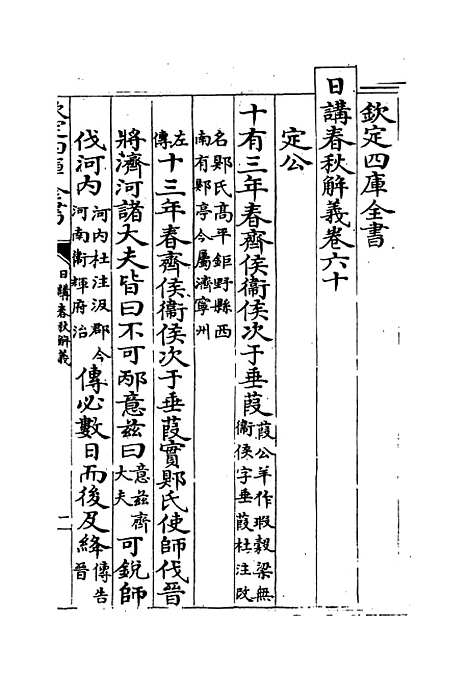 欽定四庫全書
日講春秋解義卷六十
定公
十有三年春齊侯衞侯次于垂葭葭公羊作瑕穀梁無衞侯字垂葭杜注改
名郹氏高平鉅野縣西南有郹亭今屬濟寧州
左傳十三年春齊侯衞侯次于垂葭實郹氏使師伐晉
將濟河諸大夫皆曰不可邴意茲曰意茲齊大夫可銳師
伐河内河内杜注汲郡今河南衞輝府治傳必數日而後及絳傳告晉
欽定四庫全書
日講春秋解義
一